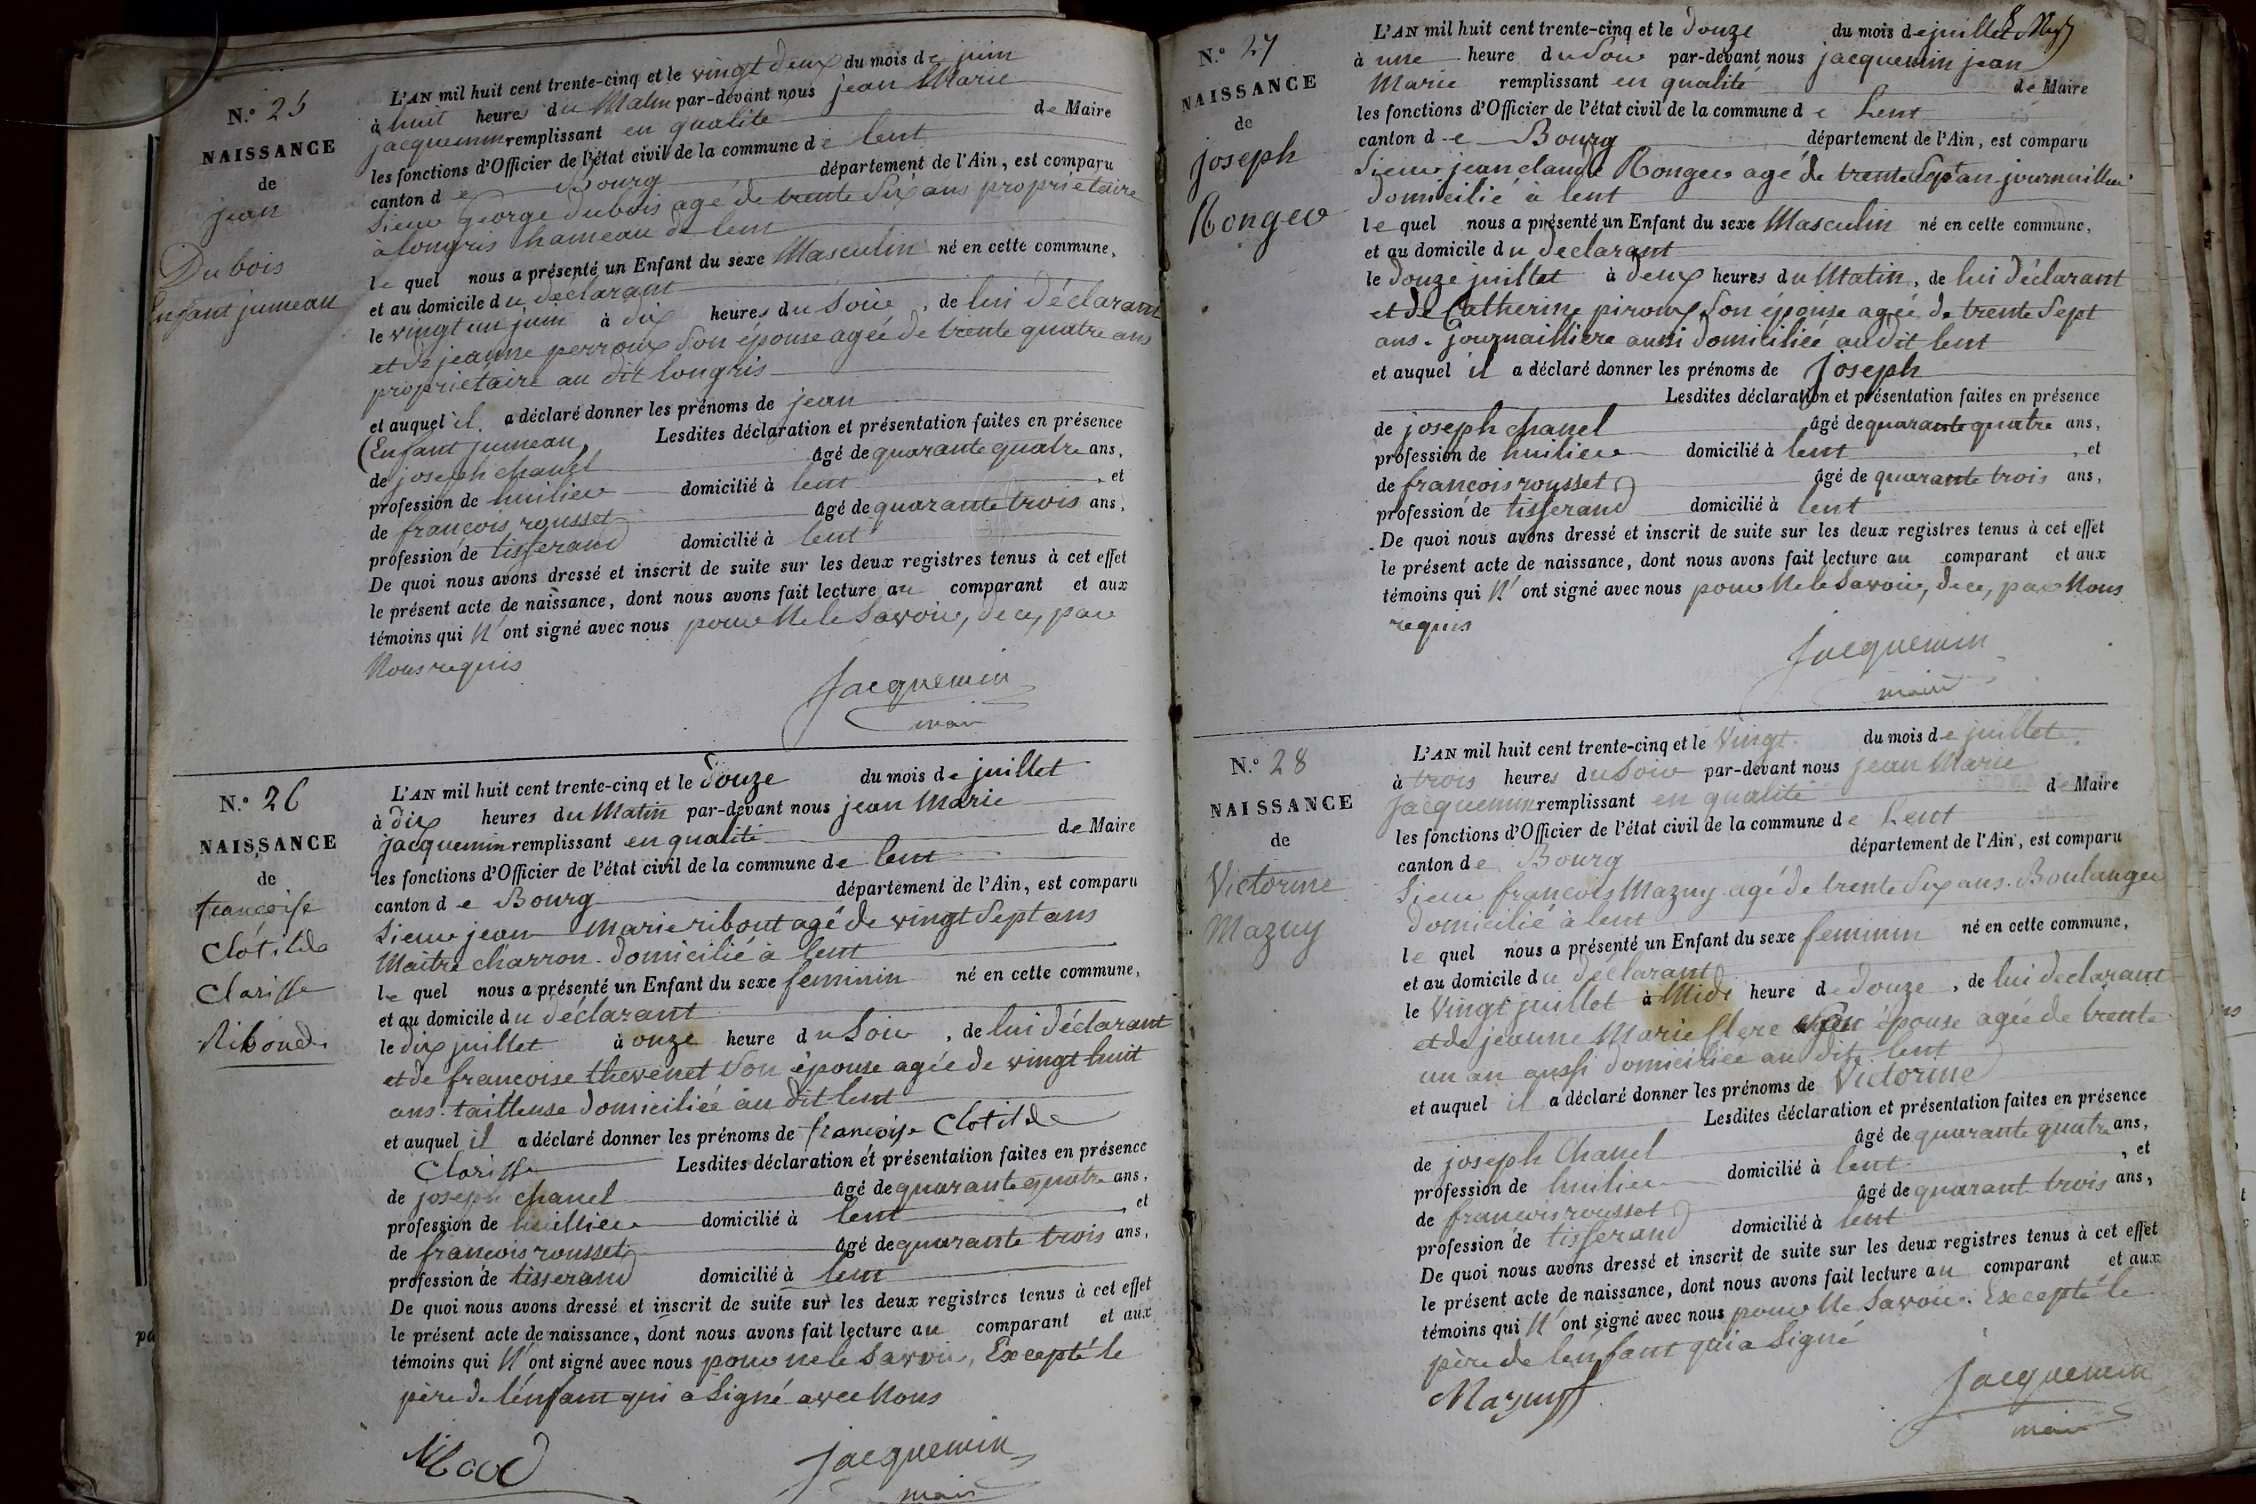 N.° 25
NAISSANCE
de
jean
Dubois
Enfant jumeau
L'AN mil huit cent trente-cinq et le vingt deux du mois de juin
à huit heures du Matin par-devant nous jean Marie
jacquemin remplissant en qualité de Maire
les fonctions d'Officier de l'état civil de la commune de lent
canton de Bourg département de l'Ain, est comparu
Sieur George dubois agé de trente Six ans propriétaire
à longris hameau de lent
le quel nous a présenté un Enfant du sexe Masculin né en cette commune,
et au domicile du déclarant
le vingt un juin à dix heures du Soir, de lui déclarant
et de jeanne perroux Son épouse agée de trente quatre ans
propriétaire au dit longris
et auquel il a déclaré donner les prénoms de jean
(Enfant jumeau Lesdites déclaration et présentation faites en présence
de joseph chanel âgé de quarante quatre ans,
profession de huilier domicilié à lent, et
de françois rousset âgé de quarante trois ans,
profession de tisserand domicilié à lent
De quoi nous avons dressé et inscrit de suite sur les deux registres tenus à cet effet
le présent acte de naissance, dont nous avons fait lecture au comparant et aux
témoins qui N'ont signé avec nous pour Ne le Savoir, de ce, par
Nous requis
Jacquemin
maire
N.° 26
NAISSANCE
de
françoise
Clotilde
Clarisse
Riboud
L'AN mil huit cent trente-cinq et le douze du mois de juillet
à dix heures du Matin par-devant nous jean Marie
jacquemin remplissant en qualité de Maire
les fonctions d'Officier de l'état civil de la commune de lent
canton de Bourg département de l'Ain, est comparu
Sieur jean Marie ribout agé de vingt Sept ans
Maître charron domicilié à lent
le quel nous a présenté un Enfant du sexe feminin né en cette commune,
et au domicile du déclarant
le dix juillet à onze heure du Soir, de lui déclarant
et de francoise thevenet Son épouse agée de vingt huit
ans. tailleuse domiciliée au dit lent
et auquel il a déclaré donner les prénoms de françoise Clotilde
Clarisse Lesdites déclaration et présentation faites en présence
de joseph chanel âgé de quarante quatre ans,
profession de huillier domicilié à lent, et
de françois rousset âgé de quarante trois ans,
profession de tisserand domicilié à lent
De quoi nous avons dressé et inscrit de suite sur les deux registres tenus à cet effet
le présent acte de naissance, dont nous avons fait lecture au comparant et aux
témoins qui N'ont signé avec nous pour ne le Savoir, Excepté le
père de l'énfant qui a Signé avec Nous
Jacquemin
maire
N.° 27
NAISSANCE
de
joseph
Ronger
L'AN mil huit cent trente-cinq et le douze du mois de juillet
à une heure du Soir par-devant nous jacquemin jean
Marie remplissant en qualité de Maire
les fonctions d'Officier de l'état civil de la commune de Lent
canton de Bourg département de l'Ain, est comparu
Sieur jean claude Ronger agé de trente Sept an journaillier
domicilié à lent
le quel nous a présenté un Enfant du sexe Masculin né en cette commune,
et au domicile du déclarant
le douze juillet à deux heures du Matin, de lui déclarant
et de Catherine piroux Son épouse agée de trente Sept
ans. journailliere aussi domiciliée au dit lent
et auquel il a déclaré donner les prénoms de Joseph
Lesdites déclaration et présentation faites en présence
de joseph chanel âgé de quarante quatre ans,
profession de huilier domicilié à lent, et
de françois rousset âgé de quarante trois ans,
profession de tisserand domicilié à lent
De quoi nous avons dressé et inscrit de suite sur les deux registres tenus à cet effet
le présent acte de naissance, dont nous avons fait lecture au comparant et aux
témoins qui N'ont signé avec nous pour Ne le Savoir, de ce, par Nous
requis
Jacquemin
maire
N.° 28
NAISSANCE
de
Victorine
Mazuy
L'AN mil huit cent trente-cinq et le Vingt du mois de juillet
à trois heures du Soir par-devant nous jean Marie
Jacquemin remplissant en qualité de Maire
les fonctions d'Officier de l'état civil de la commune de Lent
canton de Bourg département de l'Ain, est comparu
Sieur françois Mazuy agé de trente Six ans. Boulanger
domicilié à lent
le quel nous a présenté un Enfant du sexe feminin né en cette commune,
et au domicile du déclarant
le Vingt juillet à Midi heure de douze, de lui declarant
et de jeanne Marie Son épouse agée de trente
un an aussi domiciliée au dit lent
et auquel il a déclaré donner les prénoms de Victorine
Lesdites déclaration et présentation faites en présence
de joseph Chanel âgé de quarante quatre ans,
profession de huilier domicilié à lent, et
de francois rousset âgé de quarant trois ans,
profession de tisserand domicilié à lent
De quoi nous avons dressé et inscrit de suite sur les deux registres tenus à cet effet
le présent acte de naissance, dont nous avons fait lecture au comparant et aux
témoins qui N'ont signé avec nous pour Ne Savoir. Excepté le
père de l'énfant qui a Signé
Mazuy
Jacquemin
maire